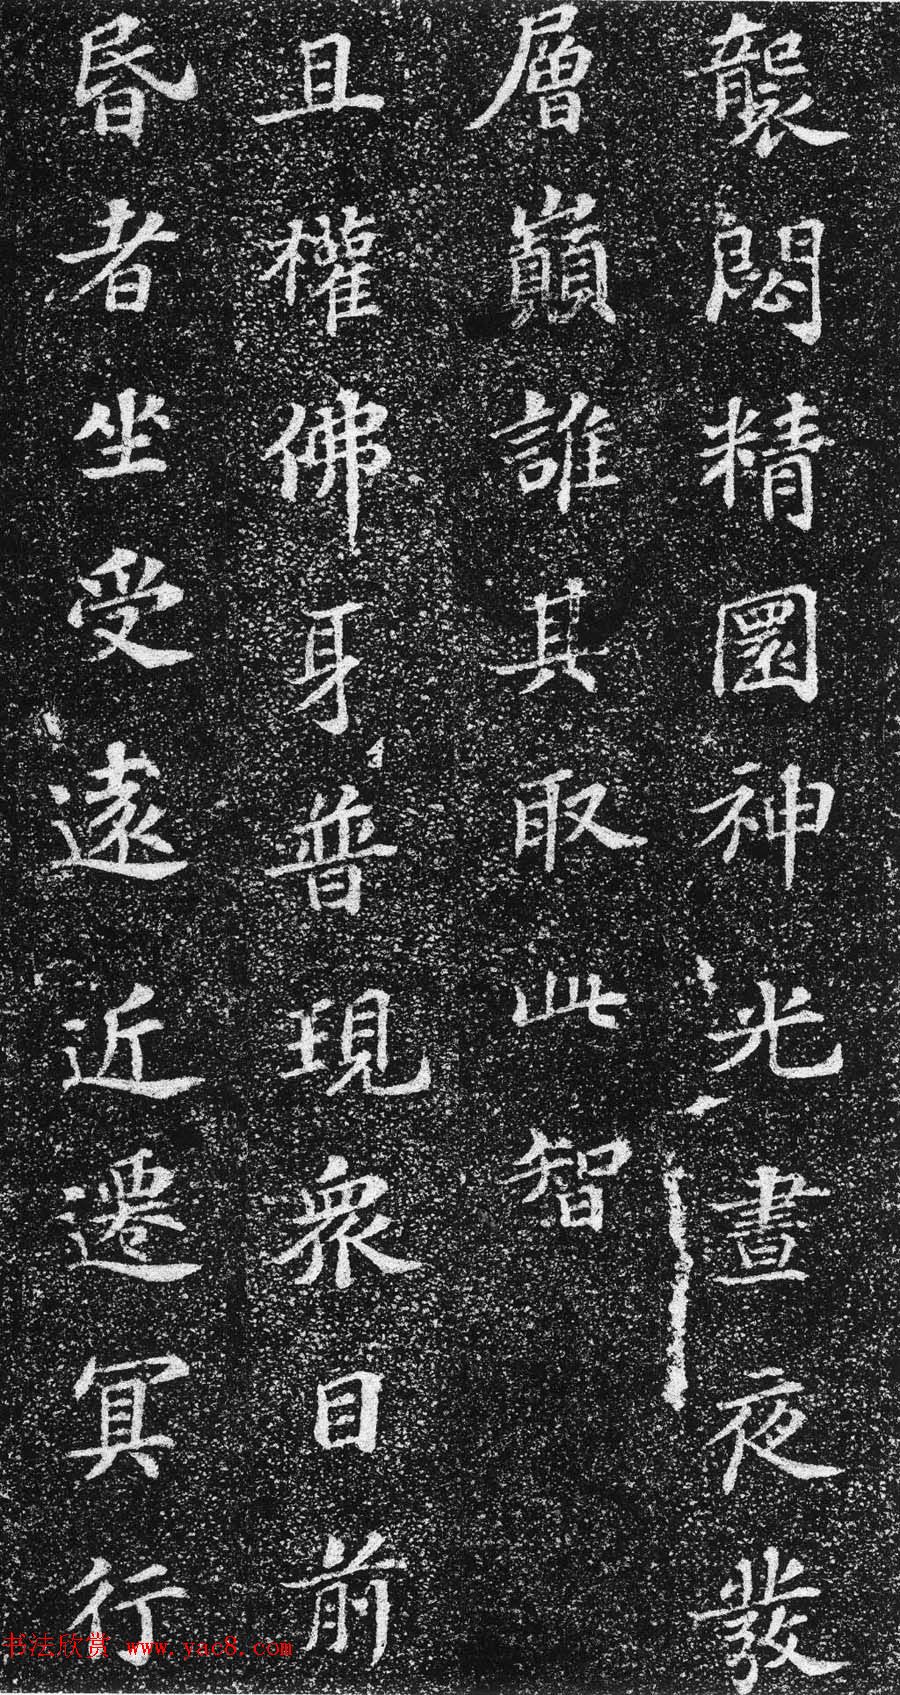 襲閟精圜神光晝夜發
層巔誰其取此智
且權佛身普現衆目前
昏者坐受遠近遷冥行
书法欣赏 www.yac8.com